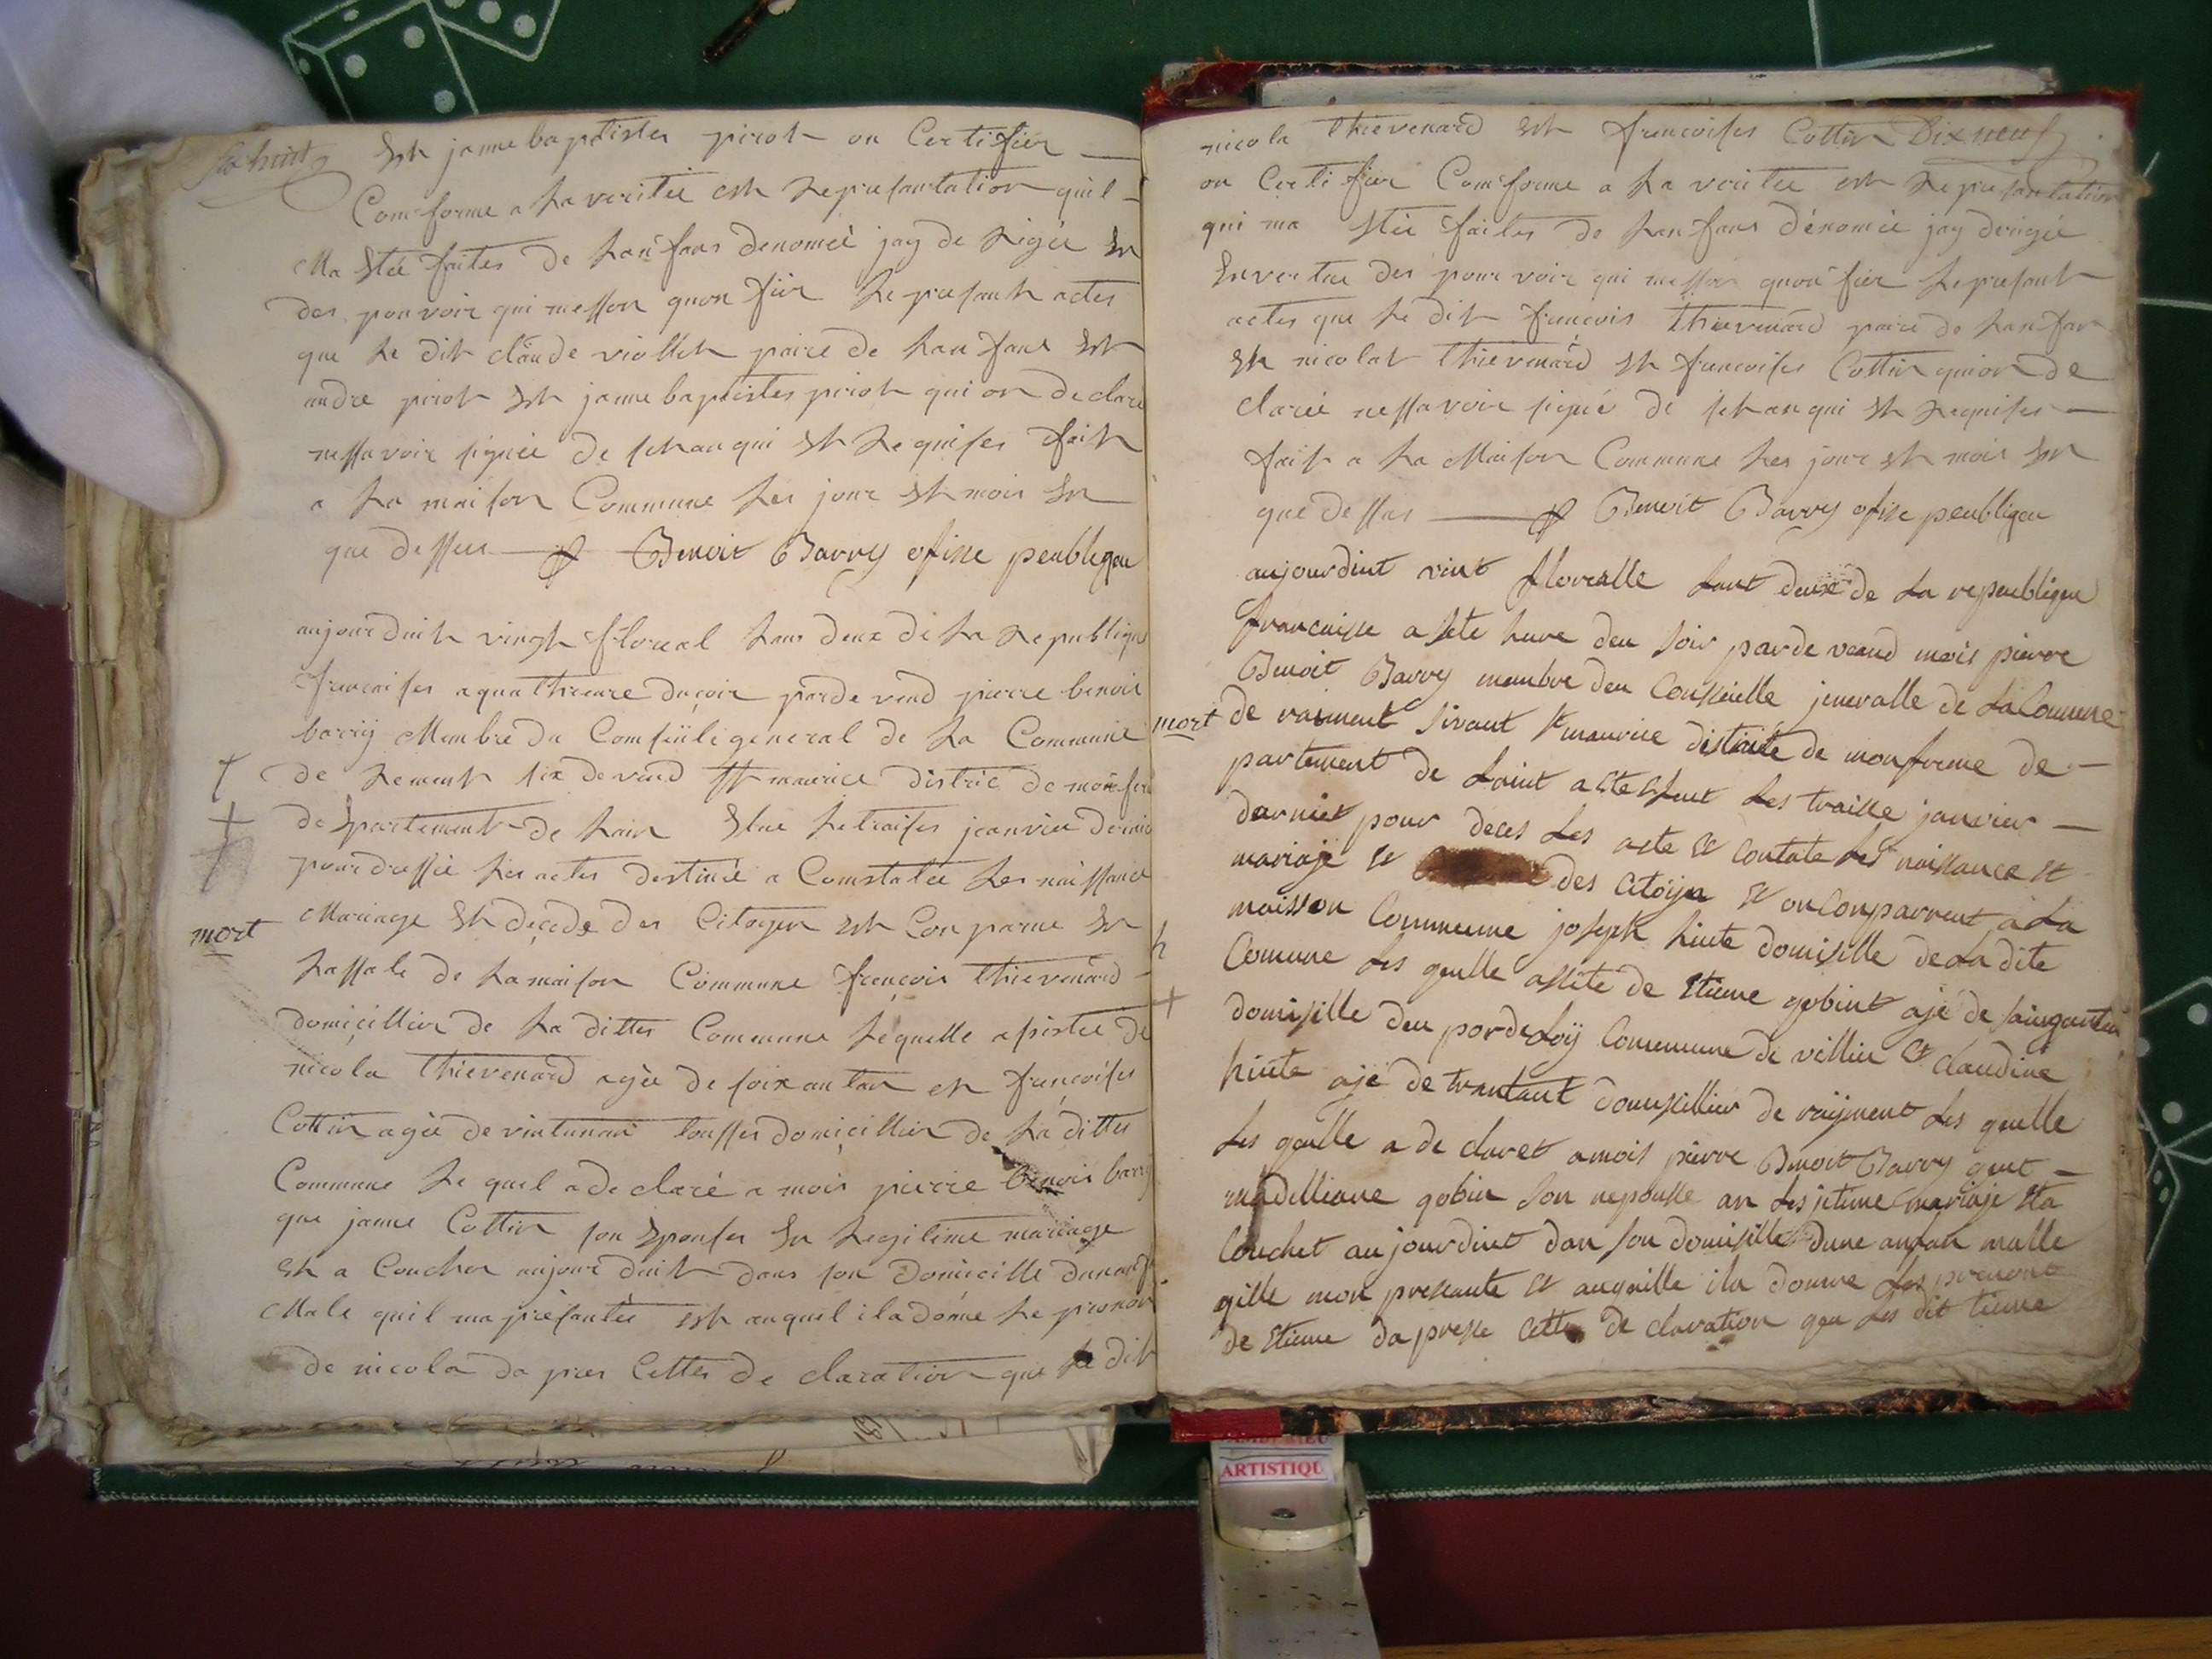 Est janne baptistes pirot on Certifier
Comforme a la veritee est Representation quil
Ma Etee faites de Lanfans denomeé jay de Rigée En
des pouvoir qui messon quon fiér Le presant actes
que Le dit claude viollet paire de Lanfans Est
andre pirot Est janne baptistes pirot qui on declare
nessavoir signée de sehauqui Et Requises fait
a La maison Commune Les jour Et mois En
que dessus Benoit Barry ofisse peublique
aujourduit vingt floreal Lans deux de La Republique
francaises a quathreure duçoir parde vend pierre benoit
barry Membre du Comseille general de La Commune
de Rement six devend St maurice distric de
departement de Lain Elue Le traises janvier dernie
pour dressée Les actes destinée a Comstatee Les naissance
mort Mariage Et deçede des Citoyen est Comparue En
Lassale de Lamaison Commune françois thievenard
domiçillier de La dittes Commune Lequelle asistee de
nicola thievenard agée de soixantan et françoises
Cottin agée de vintunan tousses domiçillier de La dittes
Commune Le quel a declaré a mois pierre benois barry
que janne Cottin son Epouses En Legitime mariage
Et a Couches aujourduit dans son Domicille
Male quil ma présantés est auquel il a donné Le pronon
de nicola da pres Cettes declaration que Le dit
nicola thievenard Est francoises Cottin Dix neuf
on Certifier Comforme a La veritee est Representation
qui ma Etée faites de Lanfans dénomée jay dirigée
En vertue des pour voir qui messon quon fier Le presant
actes que Le dit francois thievenard paire de Lanfan
Et nicolat thievenard Et francoises Cottin qui on de
clarée nessavoir signé de sehanqui Et Requises
fait a La Maison Commune Les jour Et mois En
que dessus Benoit Barry ofise peublique
aujourdint vint florealle Lant deuxe de La repeublique
francaisse a sete hure deu soir parde veand mois pierre
Benoit Barry menbre deu Conseielle jeneralle de La Comune
mort de raiment sivant St maurice distrite de monfreme de
partement de Laint aete Eleut Les traisse janvier
darniet pour deces Les acte et contate Les naissance et
mariaje et des Citôyen et on Conparrent a La
maisson Commeune joseph hinte domisille de La dite
Comune Les quelle assite de Etienne gobint ajé de sainquantan
domisille deu pordeloÿ Commune de villieu et claudine
hinte ajé de trantant domisillier de raijment Les quelle
Les quelle a de claret a mois pierre Benoit Barry quet
madelliane gobin son nepousse an Lesjitime mariaje Eta
Couchet aujourdint dan son domisille dune anfan malle
qille mon presente et auquille ila donne Les prenont
de Etienne da presse Cette de claration que Les dit tienne
ARTISTIQU